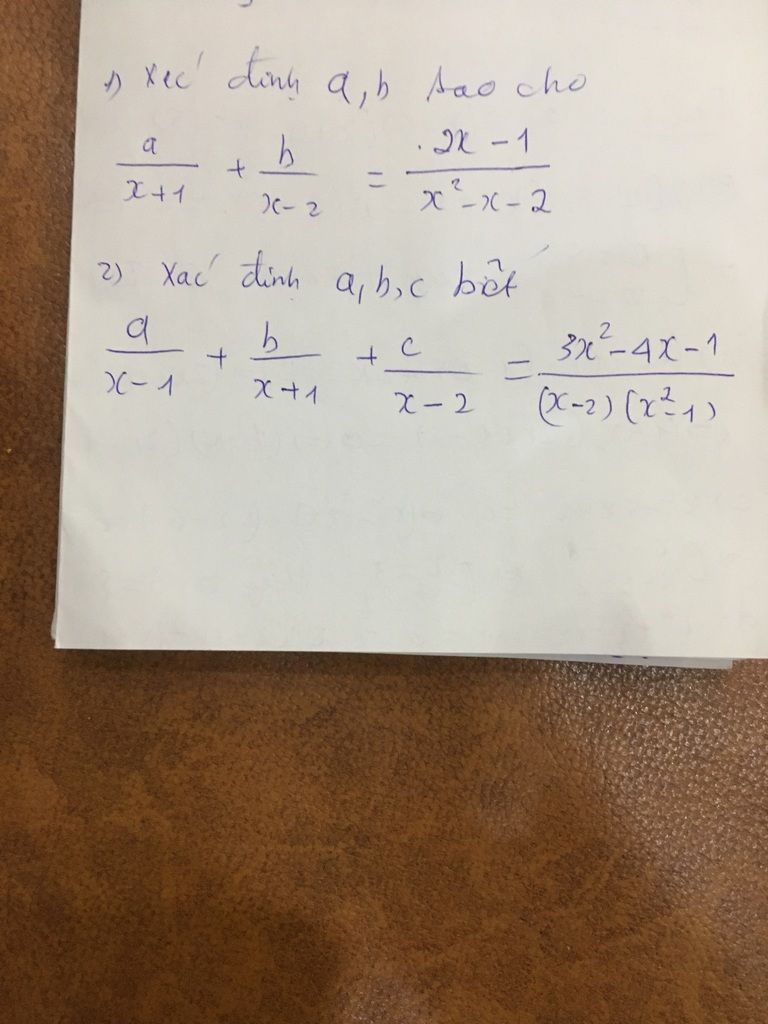 1) Xác định a, b sao cho
a/(x+1) + b/(x-2) = 2x-1/(x²-x-2)
2) Xác định a, b, c biết
a/(x-1) + b/(x+1) + c/(x-2) = 3x²-4x-1/((x-2)(x²-1))